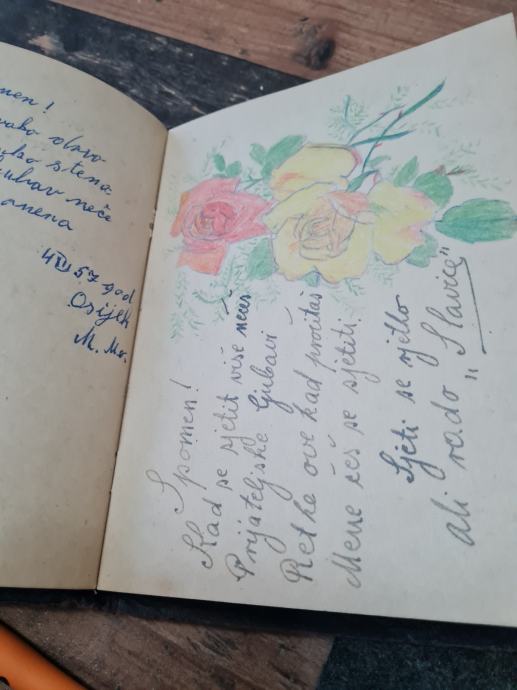 men!
drvo
stena
neće
4 III 57 god
Osijek
M. Mo.
Spomen!
Kad se sjetit više neceš
Prijateljske ljubavi
Retke ove kad pročitaš
Mene ćeš se sjetiti
Sjeti se rjetko
ali rado "Slavice"